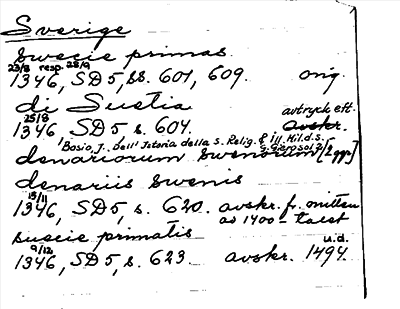 Sverige
Swecie primas
23/8 resp. 28/9
1346, SD5, ss. 601, 609. orig.
di Suetia avtryck eft.
25/8
1346, SD5, s. 604. Avskr.
Bosio, J., Dell' Istoria della S. Relig. & Ill. Mil. d. S.
denariorum swenorum [2 ggr]
denariis swenis
15/11
1346, SD5, s. 620. avskr. fr. mitten
av 1400-talet
suecie primatis u.d.
9/12
1346, SD5, s. 623. avskr. 1494.